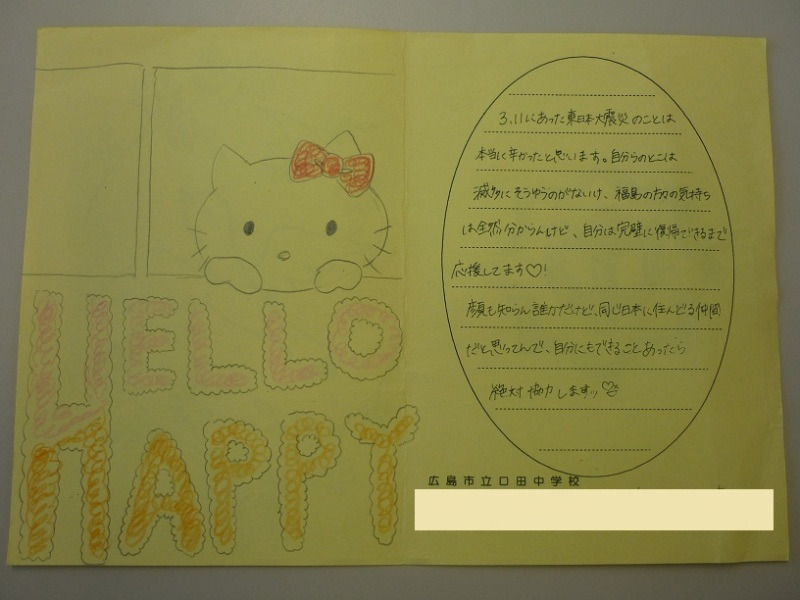 HELLO
HAPPY
3.11にあった東日本大震災のことは
本当に辛かったと思います。自分らのとこは
滅多にそうゆうのがないけ、福島の方々の気持ち
は全然分からんけど、自分は完璧に復帰できるまで
応援してます♡!
顔も知らん誰かだけど、同じ日本に住んどる仲間
だと思ってんで、自分にもできることあったら
絶対協力しますッ♡
広島市立口田中学校